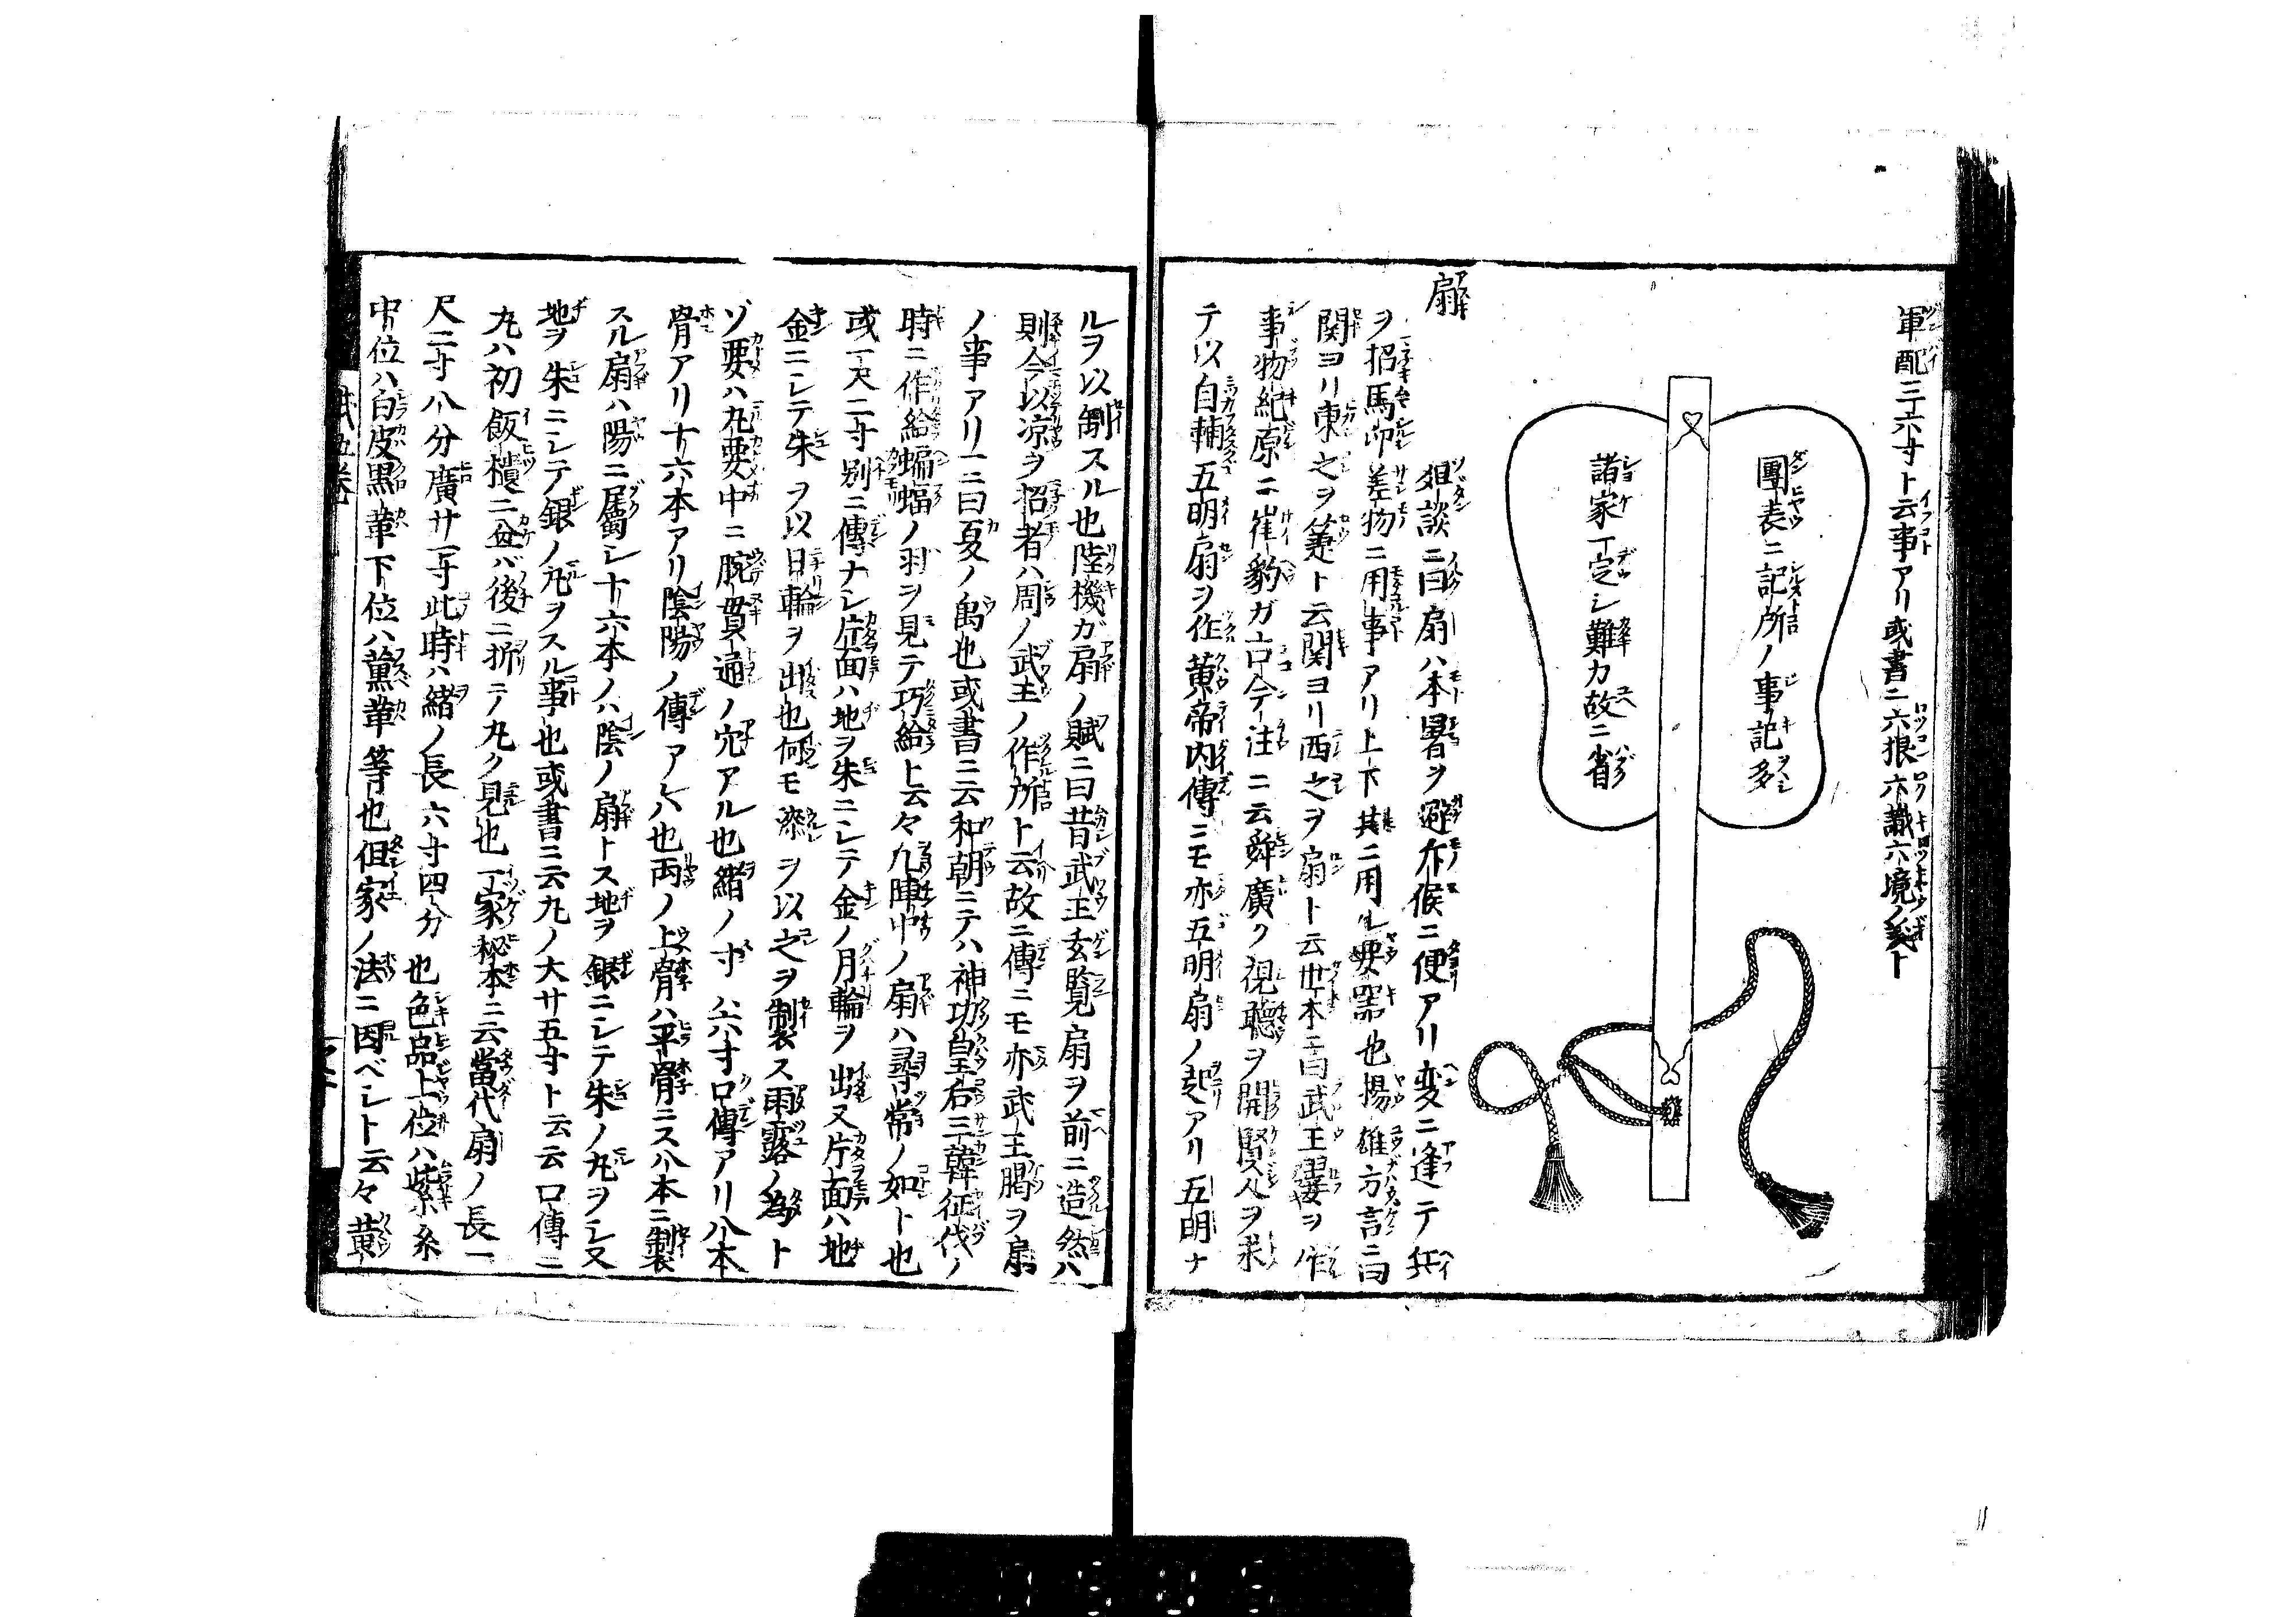 軍配三六寸ト云事アリ或書ニ六根六識六境ノ義ト
團表ニ記所ノ事記多
諸家一定シ難カ故ニ省
扇
俎談ニ曰扇ハ本暑ヲ避亦候ニ便アリ変ニ逢テ兵
ヲ招馬印差物ニ用事アリ上下其ニ用ル要器也揚雄方言ニ曰
関ヨリ東之ヲ箑ト云関ヨリ西之ヲ扇ト云世本ニ曰武王翣ヲ作
事物紀原ニ崔豹ガ古今注ニ云舜廣ク視聽ヲ開賢人ヲ求
テ以自輔五明扇ヲ作黄帝内傳ニモ亦五明扇ノ起アリ五明ナ
ルヲ以制スル也陸機ガ扇ノ賦ニ曰昔武王玄覧扇ヲ前ニ造然ハ
則今以凉ヲ招者ハ周ノ武王ノ作所ト云故ニ傳ニモ亦武王暍ヲ扇
ノ事アリ一ニ曰夏ノ禹也或書ニ云和朝ニテハ神功皇后三韓征伐ノ
時ニ作給蝙蝠ノ羽ヲ見テ巧給ト云々凡陣中ノ扇ハ尋常ノ如ト也
或一尺二寸別ニ傳ナシ片面ハ地ヲ朱ニシテ金ノ月輪ヲ出又片面ハ地
金ニシテ朱ヲ以日輪ヲ出也何モ漆ヲ以之ヲ制製ス雨露ノ為ト
ゾ要ハ九要中ニ腕貫通ノ穴アル也緒ノ寸六寸口傳アリ八本
骨アリ十六本アリ陰陽ノ傳アレハ也両ノ上骨ハ平骨ニス八本ニ製
スル扇ハ陽ニ屬シ十六本ノハ陰ノ扇トス地ヲ銀ニシテ朱ノ丸ヲシ又
地ヲ朱ニシテ銀ノ丸ヲスル事也或書ニ云丸ノ大サ五寸ト云云口傳ニ
丸ハ初飯櫃ニ畫バ後ニ折テ丸ク見也一家秘本ニ云當代扇ノ長一
尺二寸八分廣サ一寸此時ハ緒ノ長六寸四分也色品上位ハ紫糸
中位ハ白皮黒革下位ハ薫革等也但家ノ法ニ因ベシト云々黄